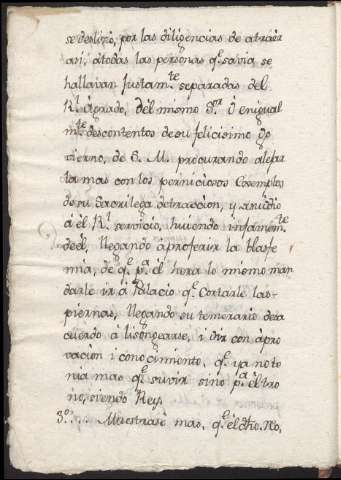 se deslizó, por las diligencias de atraèr
asi, á todas las personas q.e savia, se
hallavan justam.te separadas del
R.l Agrado, del mismo S.or ò enigual
m.te descontentos de su felicisimo Go
vierno, de S. M. procurando alejar
las mas con los perniciosos Exemplos,
de su Sacrilega detraccion, y
à èl R.l servicio, huiendo infamem.te
deèl, llegando àproferir la blasfe
mia, de q.e p.a el hera lo mismo man
darle ir á Palacio q.e Cortarle las
piernas, llegando su temerario desa
cuerdo à lisongearse, i oir con àpro
vacion i conocimiento, q.e ya no te
nia mas q.e suvir sino p.a el tro
no, siendo Rey.
3.o Muestrase mas, q.e èl dho. No,